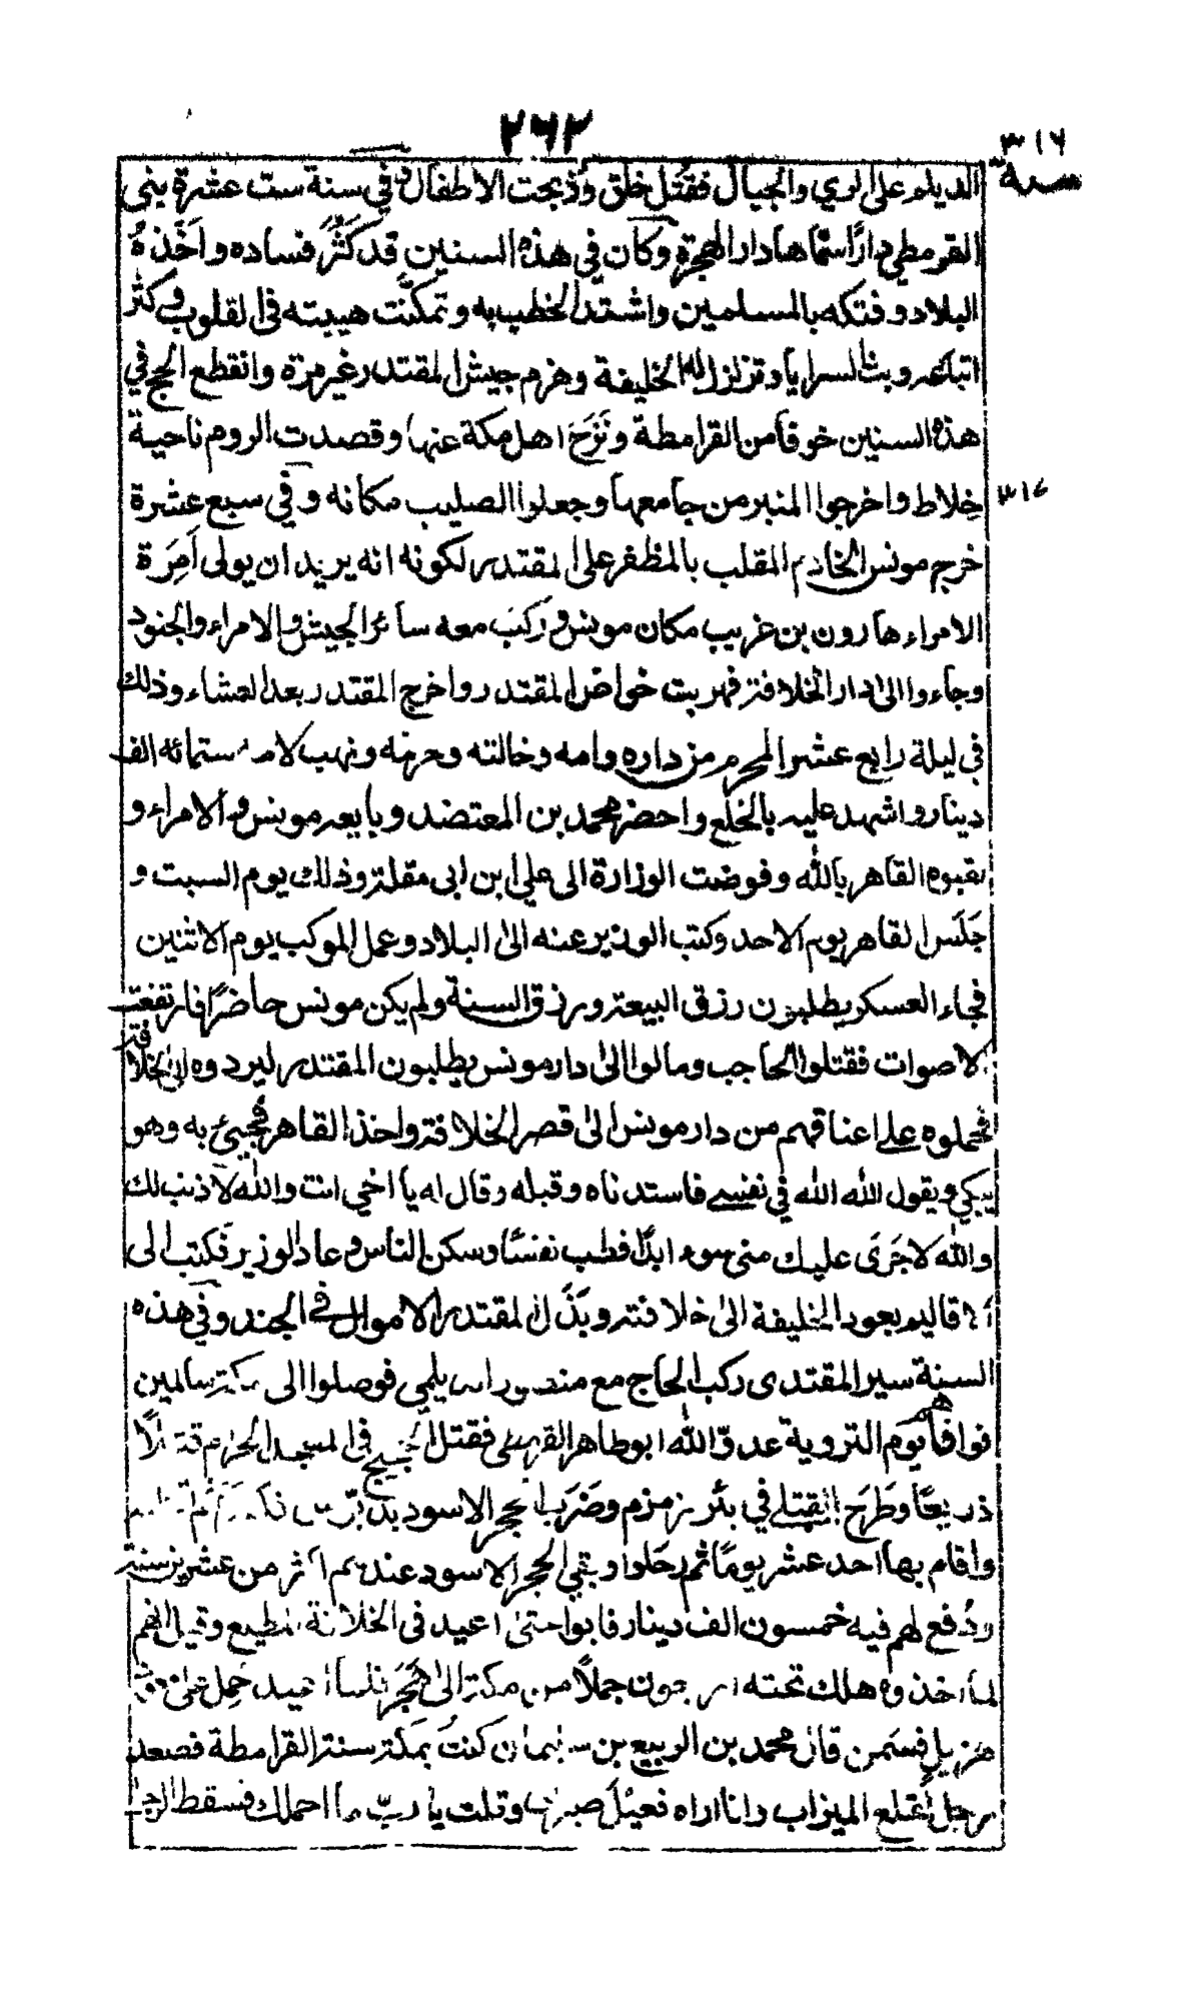 ٢٦٢
٣١٦
سنة
الديلم على الري والجبال فقتل خلق وذبحت الاطفال وفي سنة ست عشرة بنى
القرمطي دارًا سمّاها دار الهجرة وكان في هذه السنين قد كَثُرَ فساده واَخْذُهُ
البلاد وفتكه بالمسلمين واشتد الخطب به وتمكّنت هيبته في القلوب وكثر
اتباعه وبث السرايا وتزلزل له الخليفة وهزم جيش المقتدر غير مرة وانقطع الحج في
هذه السنين خوفا من القرامطة ونَزَحَ اهل مكة عنها وقصدت الروم ناحية
خلاط واخرجوا المنبر من جامعها وجعلوا الصليب مكانه وفي سبع عشرة
٣١٧
خرج مونس الخادم المقلب بالمظفر على المقتدر لكونه انه يريد ان يولى اَمِرَة
الامراء هارون بن غريب مكان مونس وركَبَ معه سائر الجيش والامراء والجنود
وجاءوا الى دار الخلافة فهربت خواصّ المقتدر واخرج المقتدر بعد العشاء وذلك
في ليلة رابع عشر المحرم من داره وامه وخالته وحرمه ونهب لامه ستمائة الف
دينار واشهد عليه بالخلع واحضر محمد بن المعتضد وبايعه مونس والامراء و
لقبوه القاهر بالله وفوضت الوزارة الى علي ابن ابى مقلة وذلك يوم السبت و
جَلَسَ القاهر يوم الاحد وكتب الوزير عنه الى البلاد وعمل الموكب يوم الاثنين
فجاء العسكر يطلبون رزق البيعة ورزق السنة ولم يكن مونس حاضرًا فارتفعت
الاصوات فقتلوا الحاجب ومالوا الى دار مونس يطلبون المقتدر ليردوه الى الخلافة
فحملوه على اعناقهم من دار مونس الى قصر الخلافة واخذ القاهر فجيئ به وهو
يبكي ويقول الله الله في نفسي فاستدناه وقبله وقال له يا اخي انت والله لا ذنب لك
والله لا جَرَى عليك منى سوء ابدًا فطب نفسًا وسكن الناس وعاد الوزير فكتب الى
الاقاليم بعود الخليفة الى خلافته وبَذَل المقتدر الاموال في الجند وفي هذه
السنة سير المقتدى ركب الحاج مع منصور الديلمي فوصلوا الى مكة سالمين
فوافاهم يوم التروية عدوّ الله ابو طاهر القرمطى فقتل الحجيج في المسجد الحرام قتلاً
ذريعًا وطَرَحَ القتلى في بئر زمزم وضَرَبَ الحجر الاسود بدبّوس
واقام بها احد عشر يومًا ثم رحلوا وبقي الحجر الاسود عندهم اكثر من عشرين سنة
ودُفع لهم فيه خمسون الف دينار فابوا حتى اعيد في الخلافة المطيع وقيل انهم
لما اخذوه هلك تحته اربعون جملاً من مكة الى هَجَر فلما اعيد حُمِل على قعود
هزيل فسَمن قال محمد بن الربيع بن سليمان كنتُ بمكة سنة القرامطة فصعد
رجل لقلع الميزاب وانا اراه فعيْل صبرى وقلت يا ربّ ما احملك فسقط الرجل